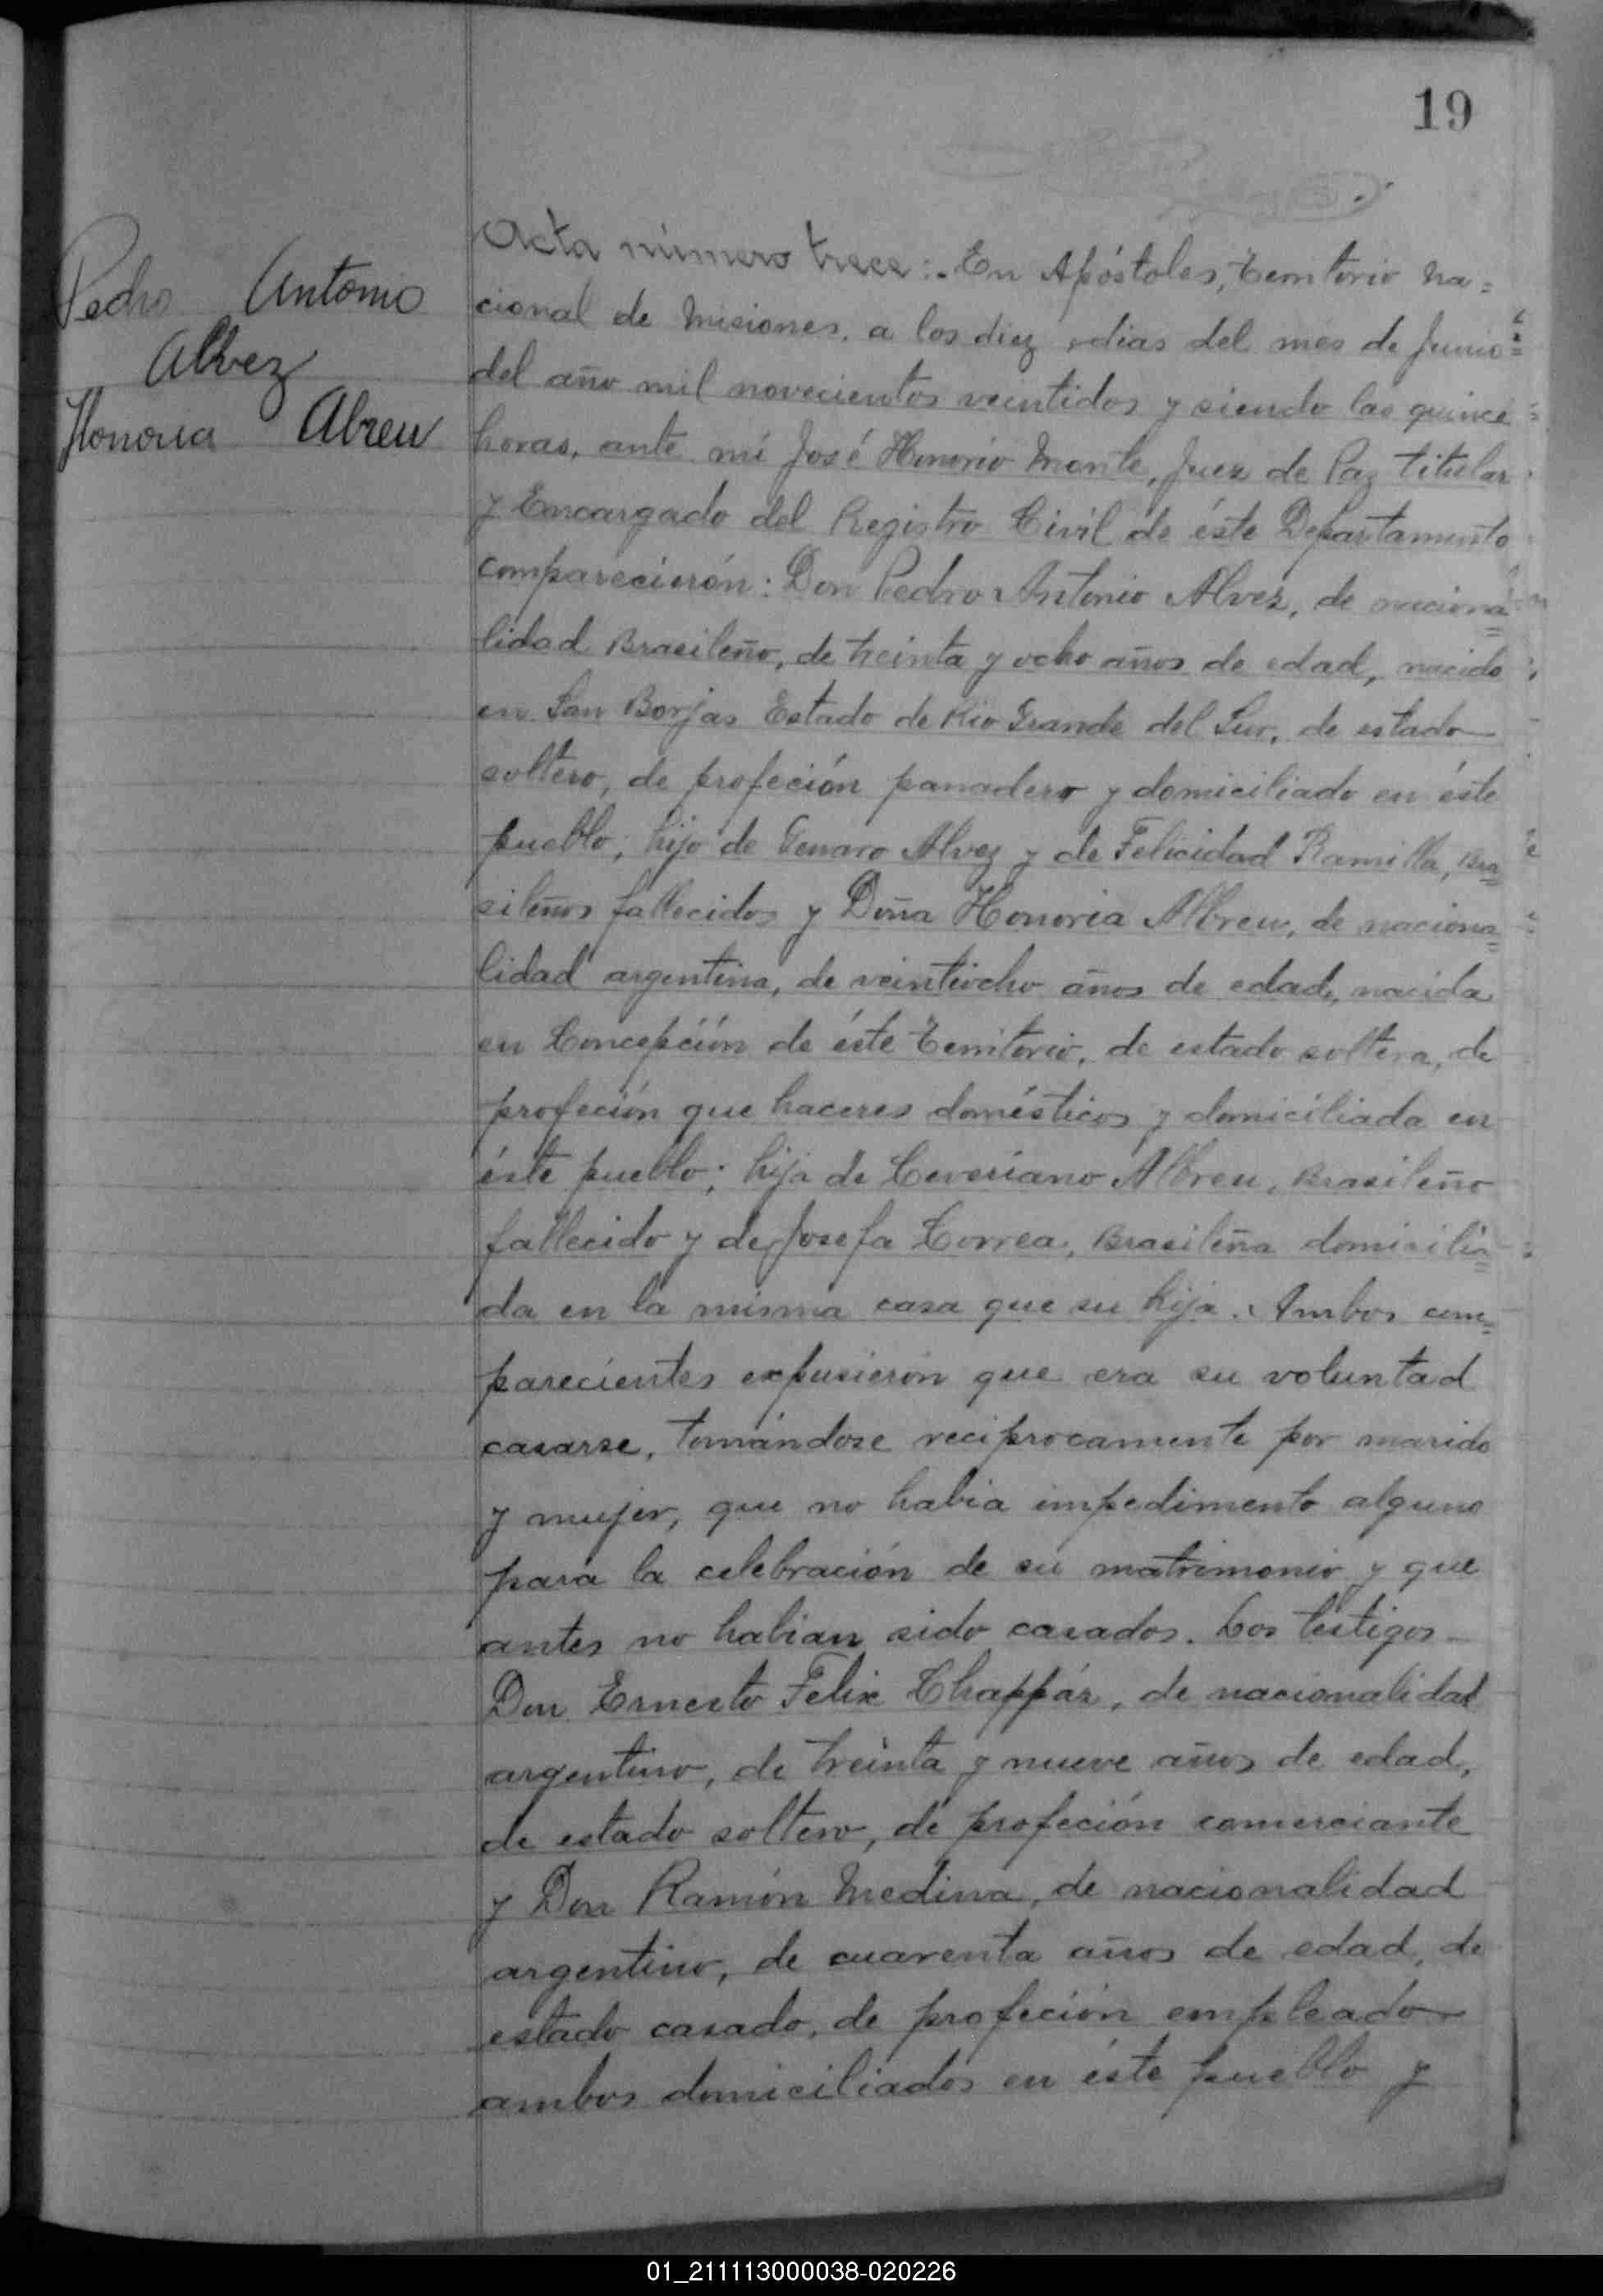 19
Pedro Antonio
Alvez
Honoria Abreu
Acta número trece:. En Apóstoles, Territorio na=
cional de Misiones, a los diez dias del mes de Junio=
del año mil novecientos veintidos y siendo las quince
horas, ante mí José Honorio Monte, Juez de Paz titular
y Encargado del Registro Civil de éste Departamento
comparecierón: Don Pedro Antonio Alvez, de naciona=
lidad Brasileño, de treinta y ocho años de edad, nacido
en San Borjas Estado de Rio Grande del Sur, de estado
soltero, de profeción panadero y domiciliado en éste
pueblo; hijo de Genaro Alvez y de Felicidad Ramilla, Bra=
sileños fallecidos y Doña Honoria Abreu, de naciona=
lidad argentina, de veintiocho años de edad, nacida
en Concepción de éste Territorio, de estado soltera, de
profeción que haceres domésticos y domiciliada en
éste pueblo; hija de Ceveriano Abreu, Brasileño
fallecido y de Josefa Correa, Brasileña domicilia=
da en la misma casa que su hija. Ambos com=
parecientes expusierón que era su voluntad
casarse, tomándose reciprocamente por marido
y mujer, que no habia impedimento alguno
para la celebración de su matrimonio y que
antes no habian sido casados. Los testigos
Don Ernesto Felix Chappáz, de nacionalidad
argentino, de treinta y nueve años de edad,
de estado soltero, de profeción comerciante
y Don Ramón Medina, de nacionalidad
argentino, de cuarenta años de edad, de
estado casado, de profeción empleado
ambos domiciliados en éste pueblo y
01_211113000038-020226